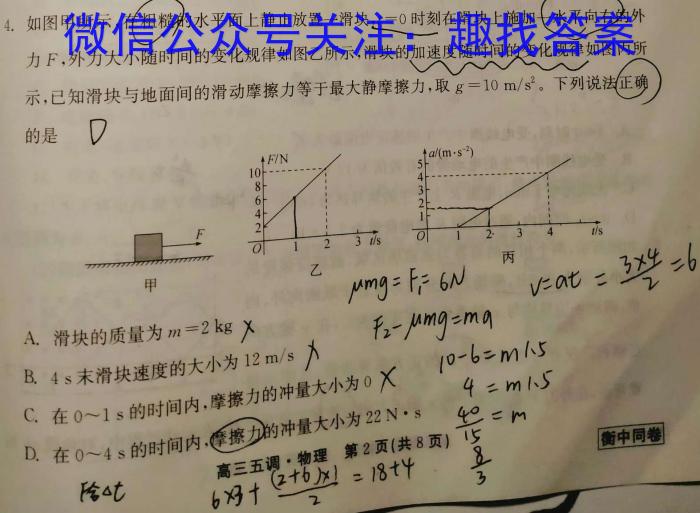 4. 如图甲所示,在粗糙的水平面上静止放置一滑块,t=0时刻在滑块上施加一水平向右的外
微信公众号关注：趣找答案
力F,外力大小随时间的变化规律如图乙所示,滑块的加速度随时间的变化规律如图丙所
示,已知滑块与地面间的滑动摩擦力等于最大静摩擦力,取g=10 m/s²。下列说法正确
的是 D
F
甲
F/N
10
8
6
4
2
O 1 2 3 t/s
乙
a/(m·s⁻²)
5
4
3
2
1
O 1 2 3 4 t/s
丙
μmg=F₁=6N
v=at = 3×4/2 = 6
F₂-μmg=ma
10-6=m1.5
4=m1.5
40/15=m
8/3
A. 滑块的质量为m=2 kg ×
B. 4 s末滑块速度的大小为12 m/s ×
C. 在0~1 s的时间内,摩擦力的冲量大小为0 ×
D. 在0~4 s的时间内,摩擦力的冲量大小为22 N·s
高三五调·物理 第2页(共8页)
衡中同卷
F合Δt
6×3+(2+6)×1/2=18+4